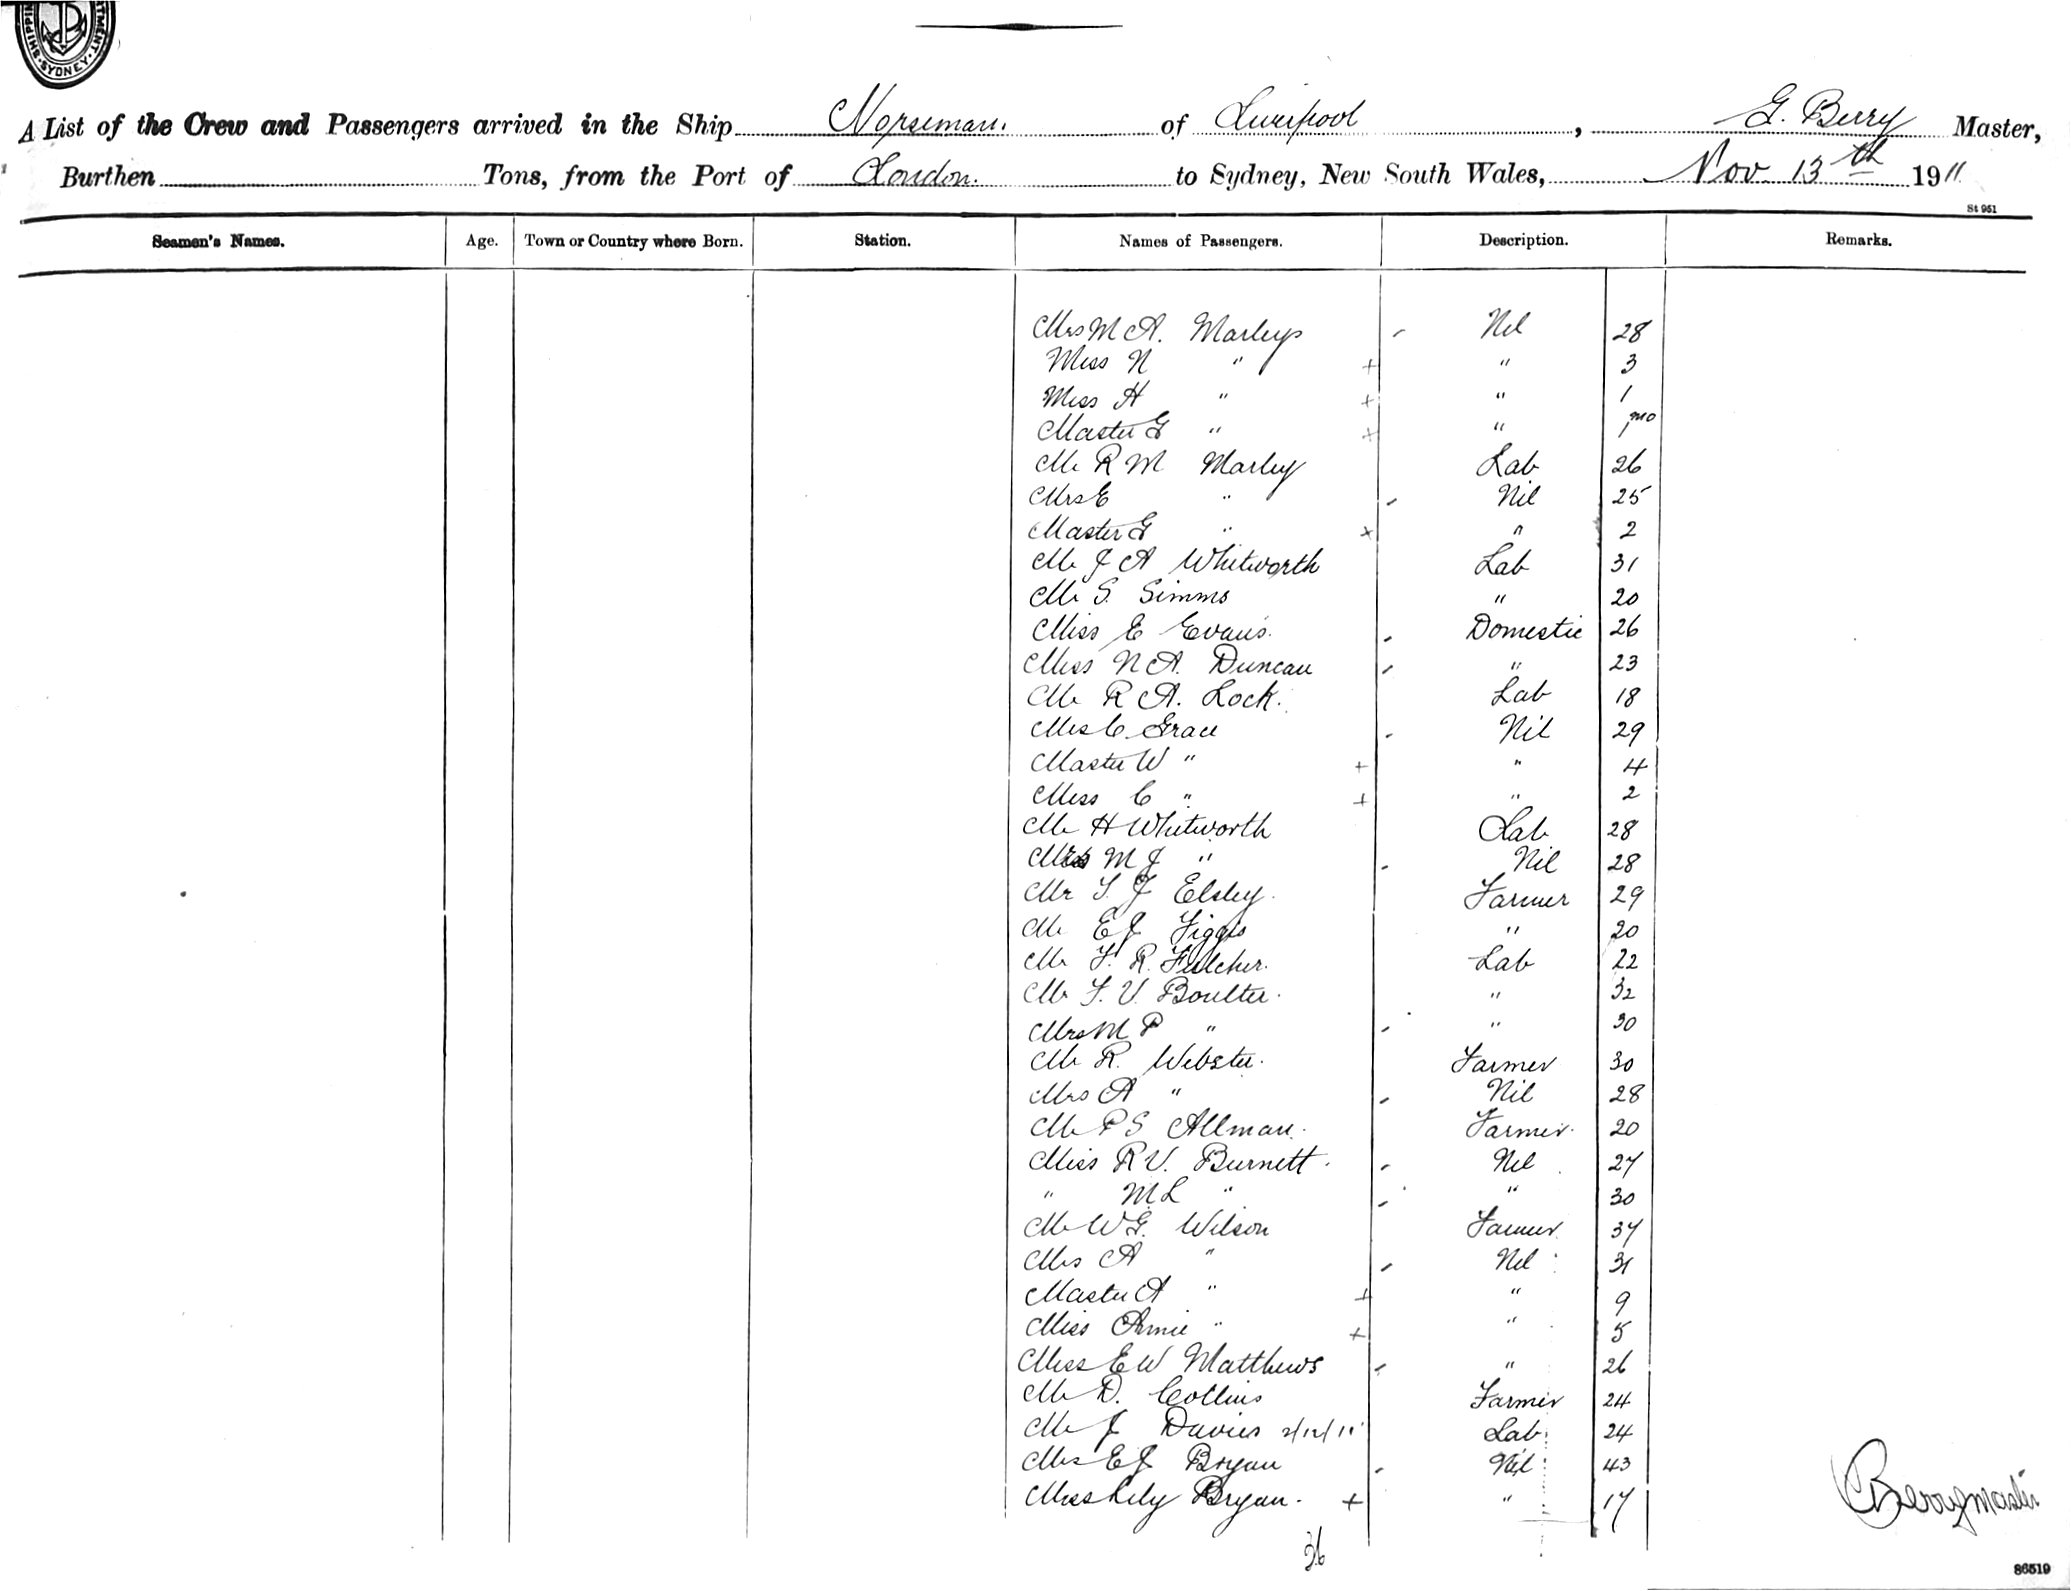 SHIPPING DEPARTMENT. SYDNEY.
A List of the Crew and Passengers arrived in the Ship Norseman. of Liverpool, G. Berry Master,
Burthen Tons, from the Port of London. to Sydney, New South Wales, Nov 13th 1911
St 951
Seamen's Names. Age. Town or Country where Born. Station. Names of Passengers. Description. Remarks.
Mrs M A. Marley Nil 28
Miss N " + " 3
Miss H " + " 1
Master G " + " 1 mo
Mr R M Marley Lab 26
Mrs E " Nil 25
Master G " x " 2
Mr J A Whitworth Lab 31
Mr S. Simms " 20
Miss E Evans. Domestic 26
Miss N A. Duncan " 23
Mr R A. Lock. Lab 18
Mrs C Grace Nil 29
Master W " + " 4
Miss C " + " 2
Mr H Whitworth Lab 28
Mrs M J " Nil 28
Mr T. J Elsley. Farmer 29
Mr E J Figgis " 20
Mr F. R. Fulcher. Lab 22
Mr F. V. Boulter. " 32
Mrs M P " " 30
Mr R. Webster. Farmer 30
Mrs A " Nil 28
Mr P S Allman. Farmer. 20
Miss R V. Burnett. Nil 27
" M L " " 30
Mr W G. Wilson Farmer 37
Mrs A " Nil 31
Master A " + " 9
Miss Annie " + " 5
Miss E W Matthews " 26
Mr D. Collins Farmer 24
Mr J Davies 2/12/11 Lab 24
Mrs E J Bryan Nil 43
Miss Lily Bryan. + " 17
36
G Berry master
86519